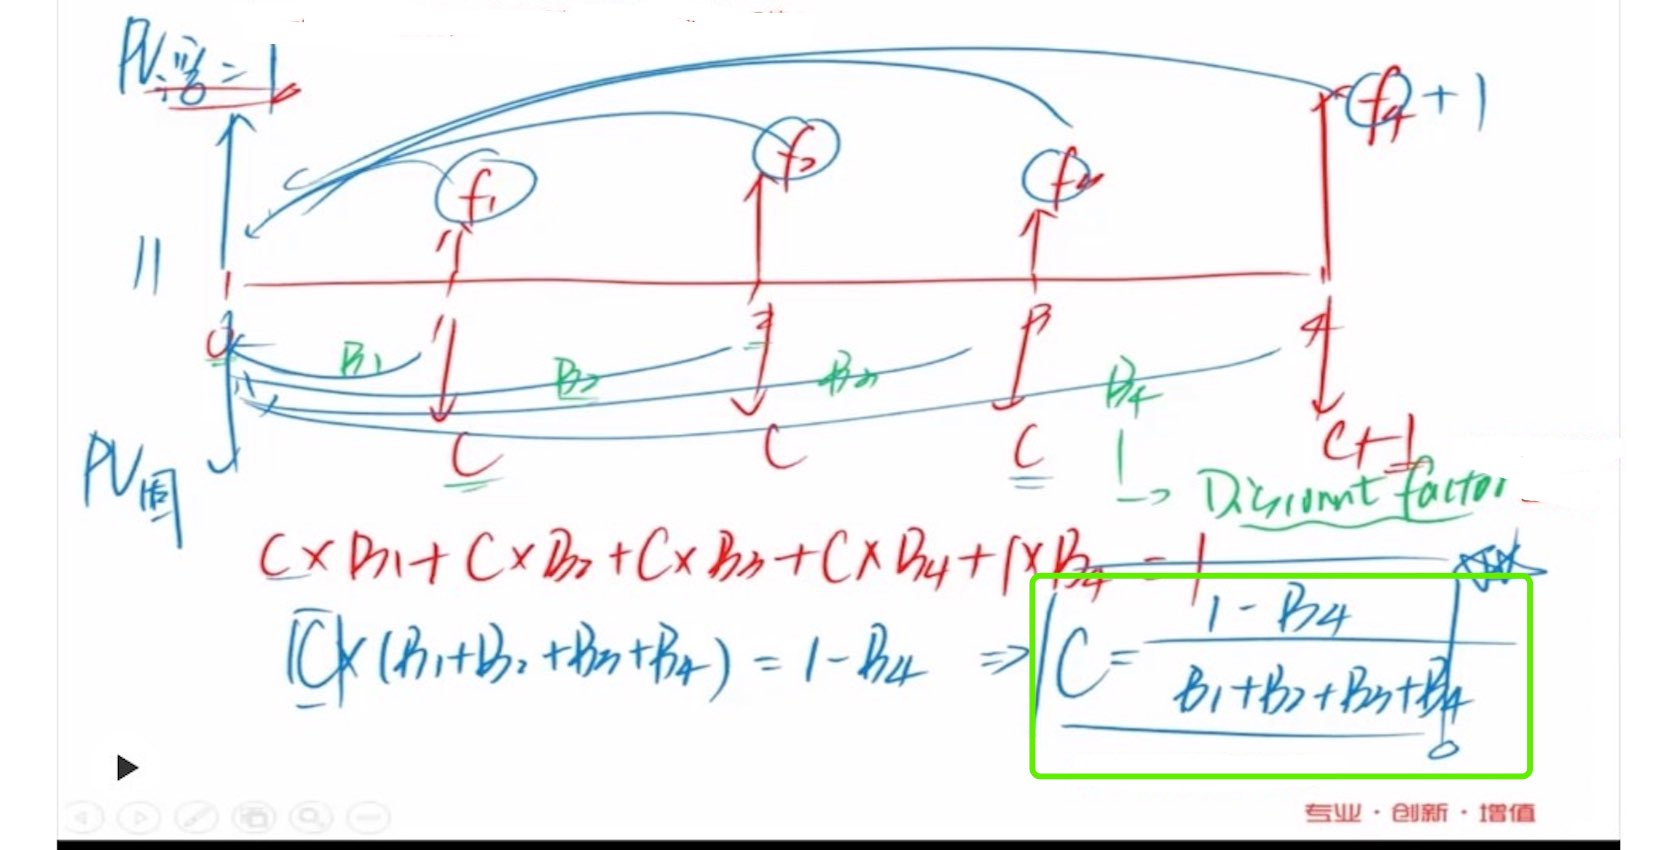 PV浮 = 1
f₁
f₂
f₃
f₄ + 1
||
0
1
2
3
4
B₁
B₂
B₃
B₄
C
C
C
C+1
PV固
Discount factor
C×B₁+C×B₂+C×B₃+C×B₄+1×B₄ = 1
C×(B₁+B₂+B₃+B₄) = 1-B₄ ⇒ C = (1-B₄)/(B₁+B₂+B₃+B₄)
专业 · 创新 · 增值